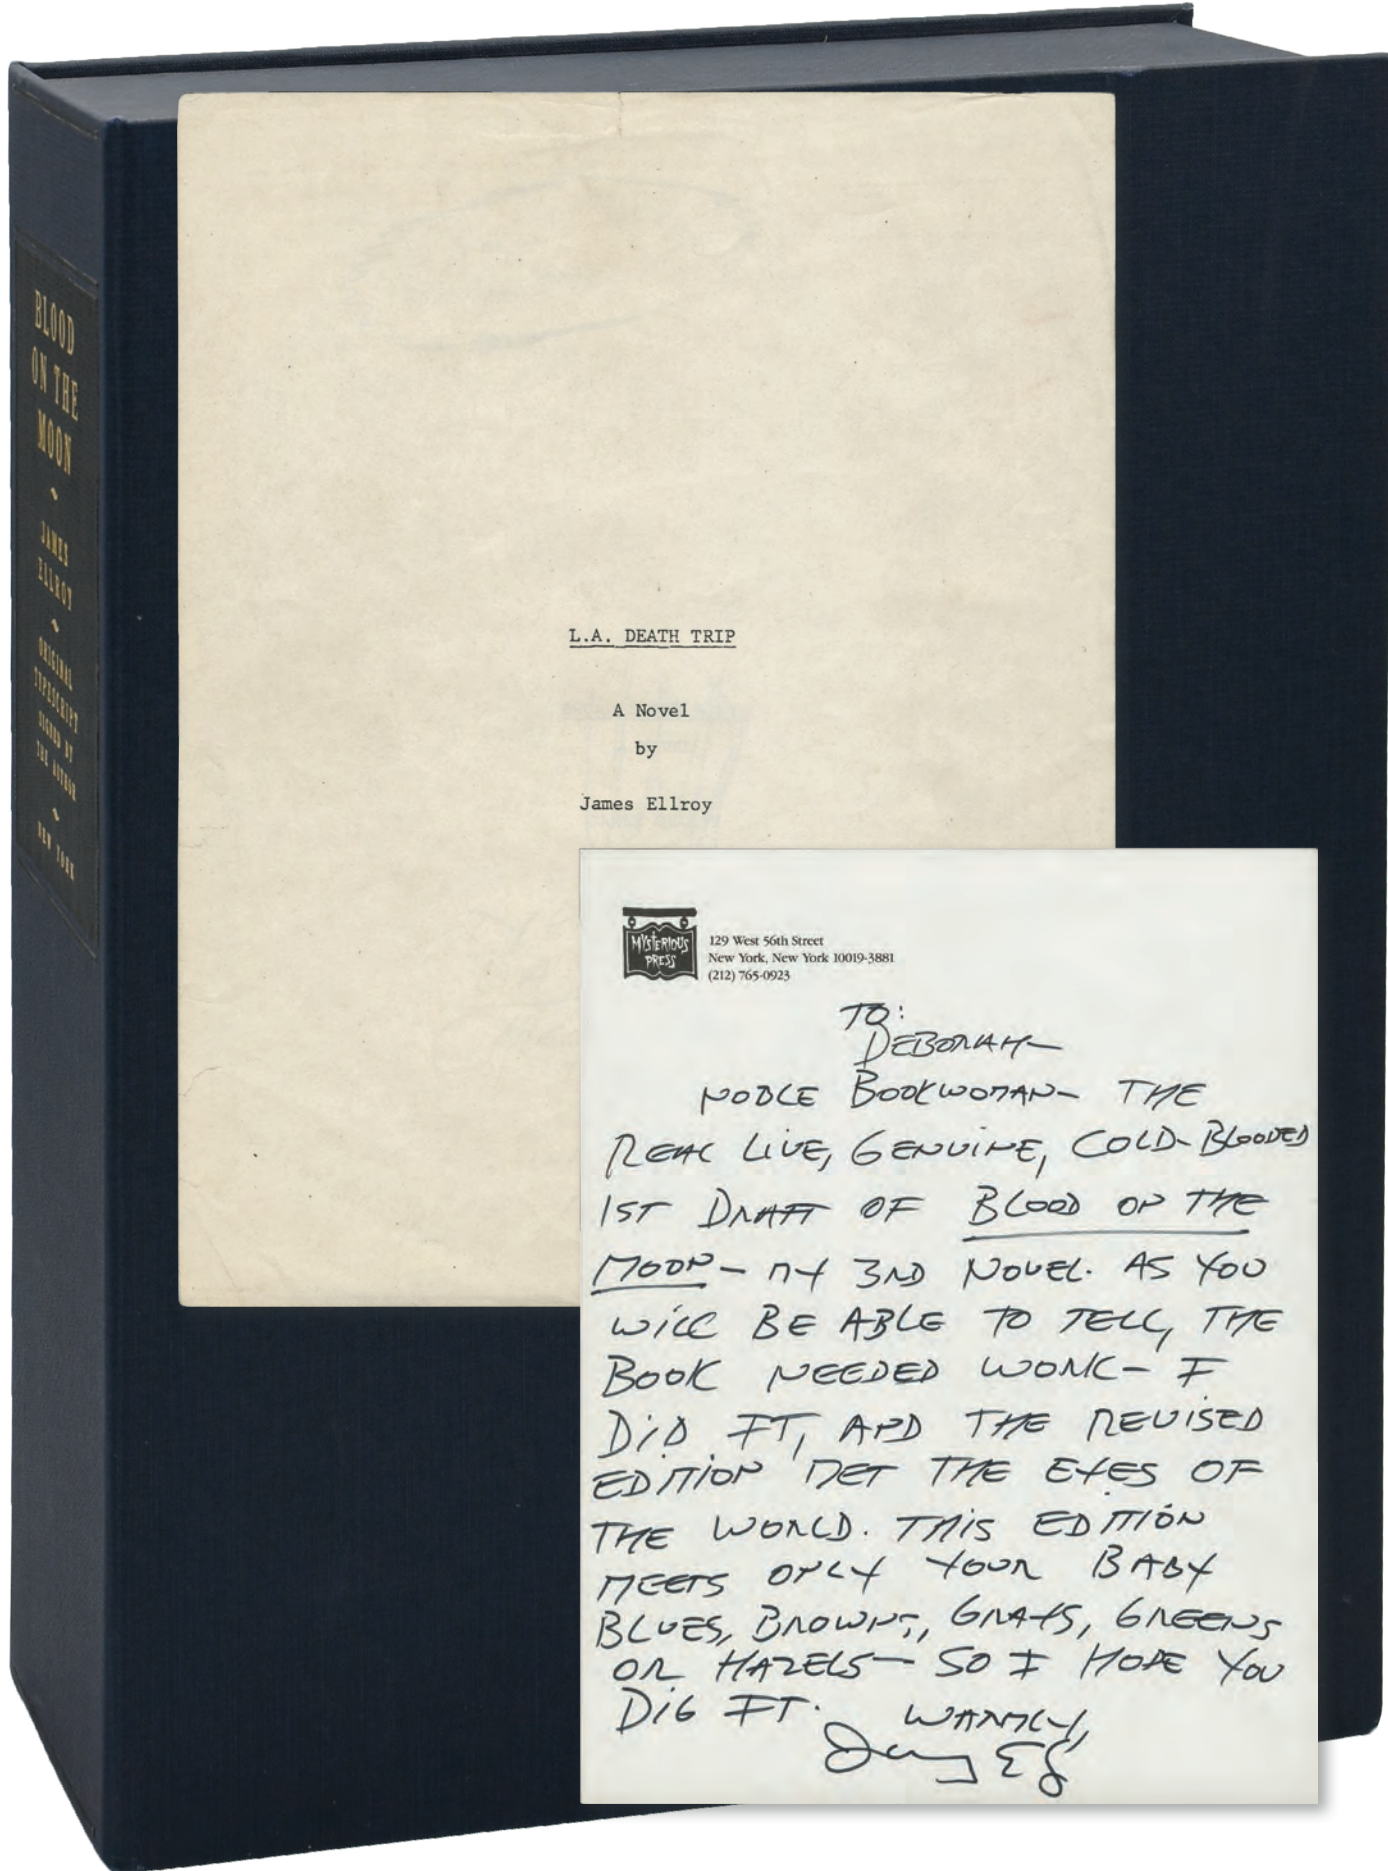 BLOOD
ON THE
MOON
JAMES
ELLROY
ORIGINAL
TYPESCRIPT
SIGNED BY
THE AUTHOR
NEW YORK
L.A. DEATH TRIP
A Novel
by
James Ellroy
MYSTERIOUS
PRESS
129 West 56th Street
New York, New York 10019-3881
(212) 765-0923
TO:
DEBORAH—
NOBLE BOOKWOMAN— THE
REAL LIVE, GENUINE, COLD-BLOODED
1ST DRAFT OF BLOOD ON THE
MOON— MY 3RD NOVEL. AS YOU
WILL BE ABLE TO TELL, THE
BOOK NEEDED WORK— I
DID IT, AND THE REVISED
EDITION MET THE EYES OF
THE WORLD. THIS EDITION
MEETS ONLY YOUR BABY
BLUES, BROWNS, GRAYS, GREENS
OR HAZELS— SO I HOPE YOU
DIG IT. WARMLY,